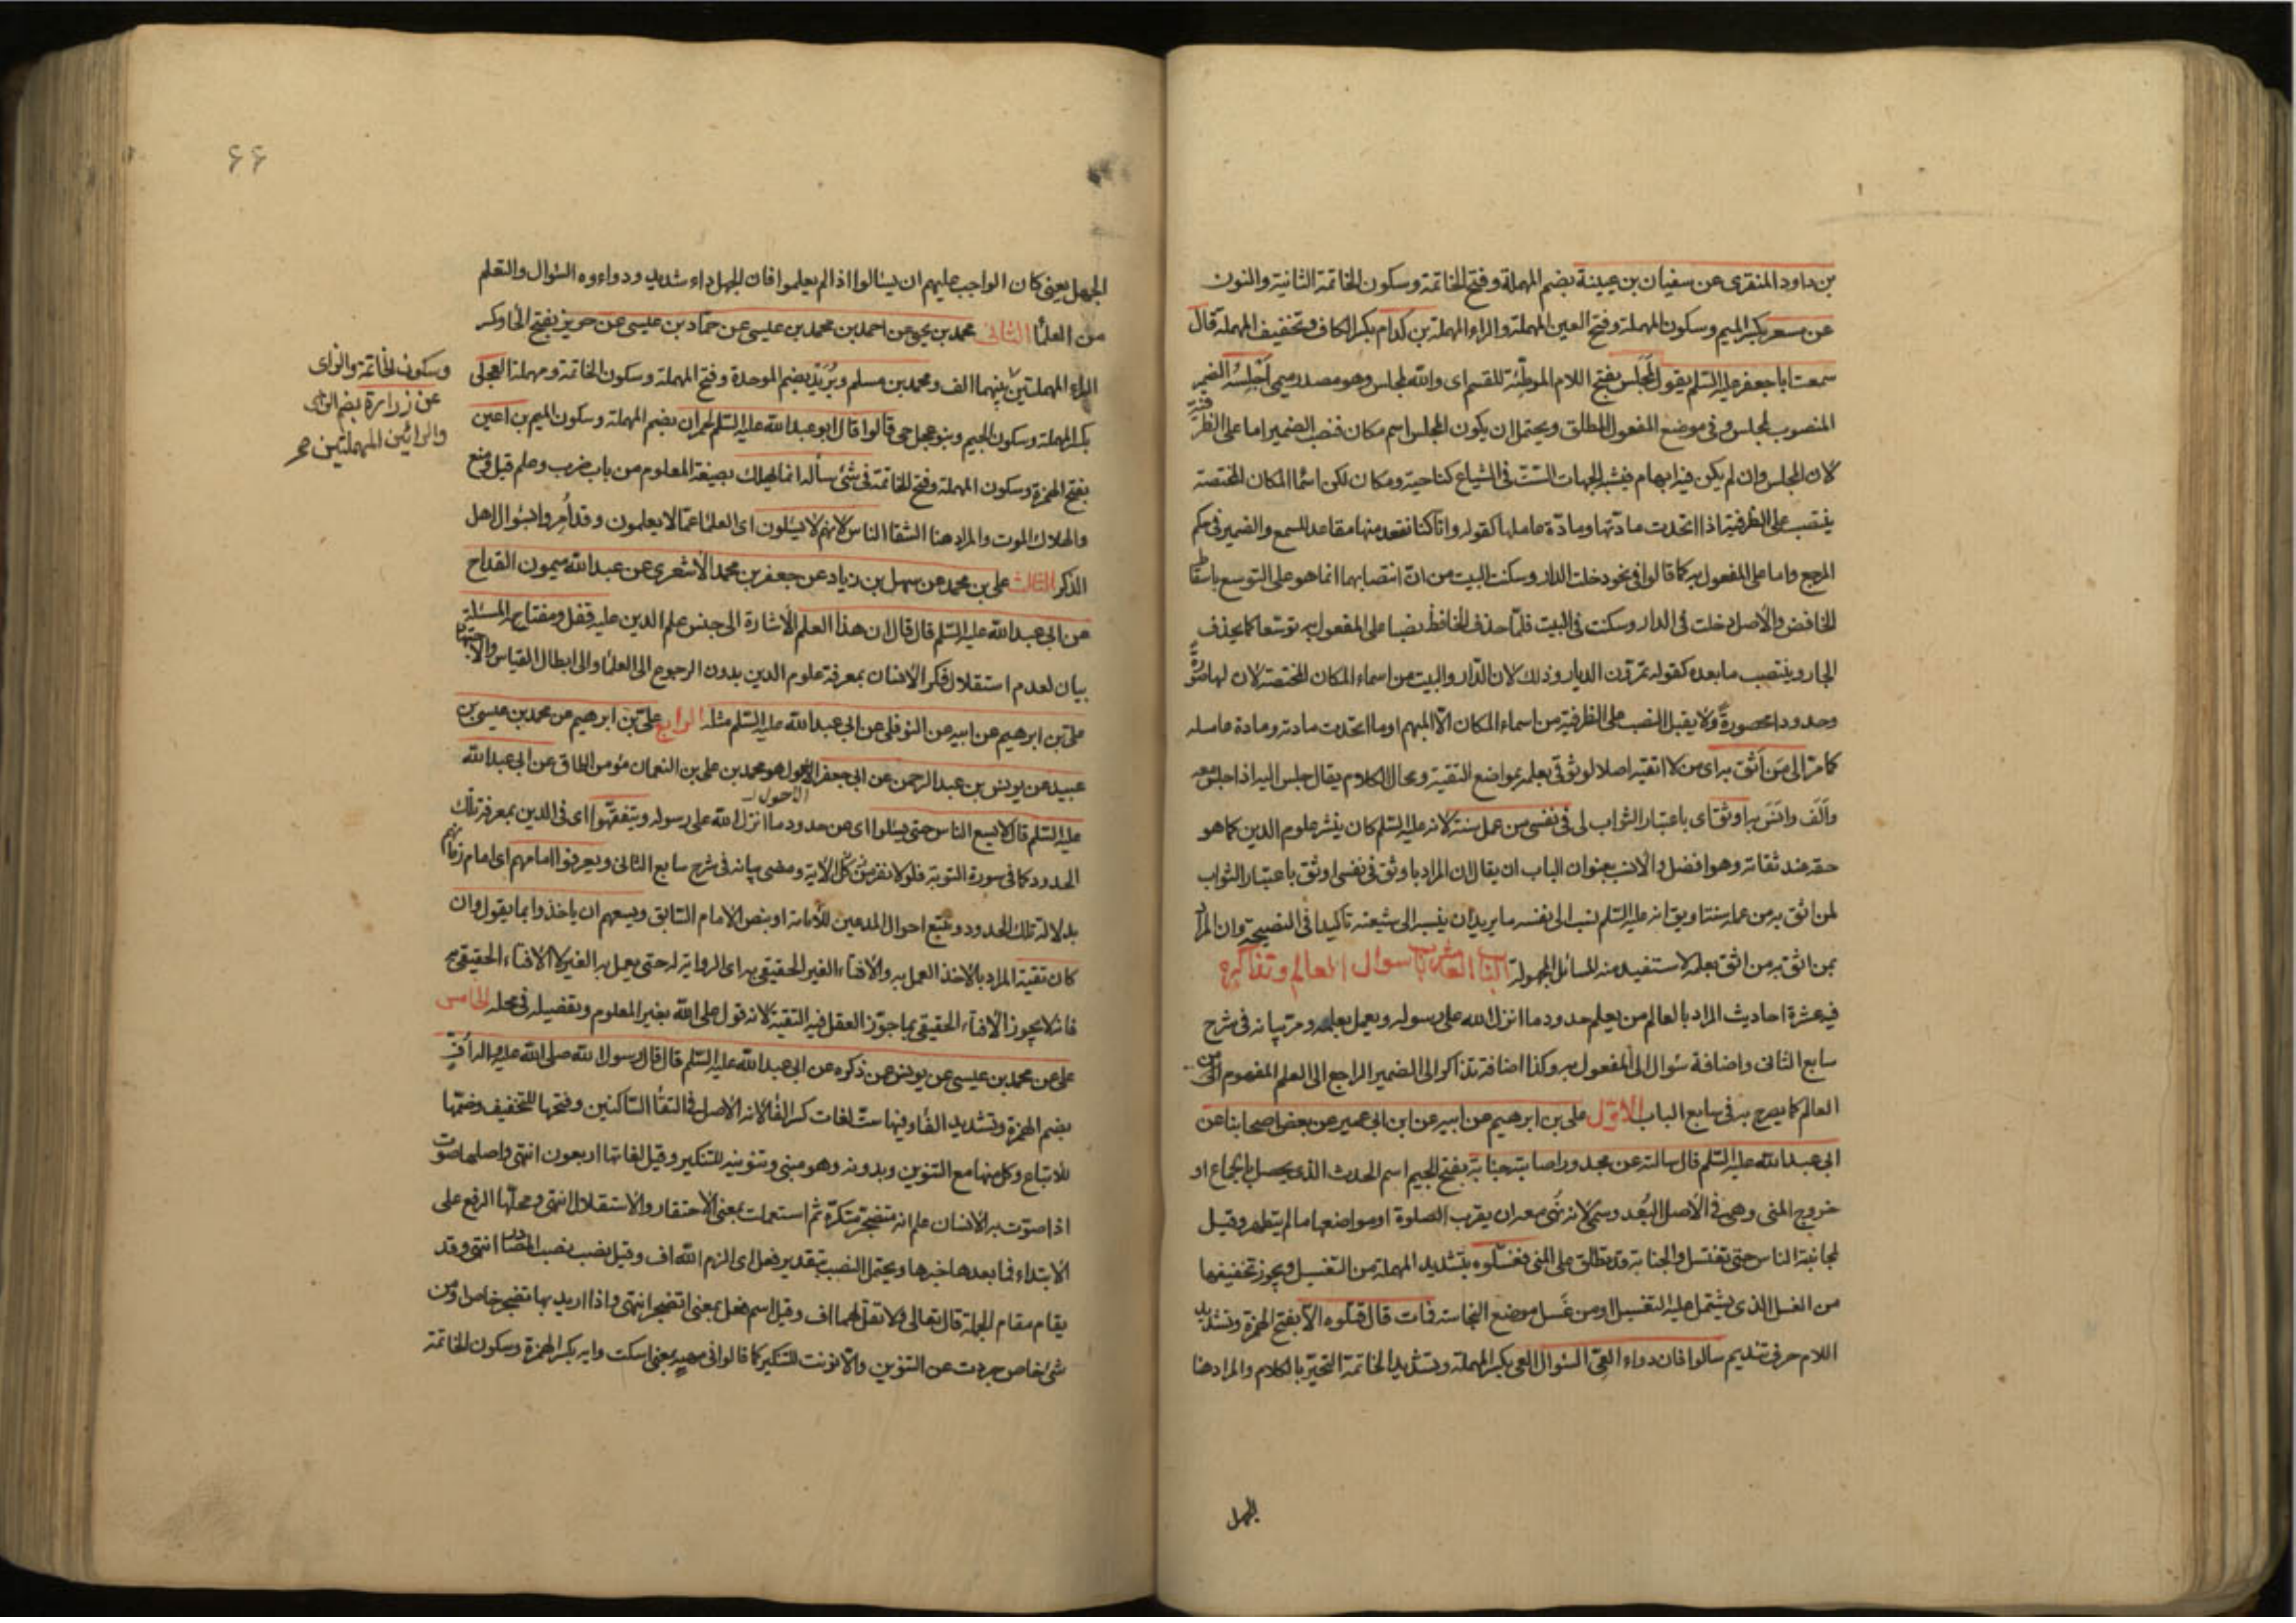 بن داود المنقرى عن سفيان بن عيينة بضم المهملة وفتح الخاتمة وسكون الخاتمة الثانية والنون
عن مسعر بكسر الميم وسكون المهملة وفتح العين المهملة والراء المهملة بن كدام بكسر الكاف وتخفيف المهملة قال
سمعت ابا جعفر عليه السّلم يقول لَمجلس بفتح اللام الموطّئة للقسم اى والله لمجلس وهو مصدر ميمى اَجلِسُه الضمير
المنصوب لمجلس وفى موضع المفعول المطلق ويحتمل ان يكون المجلس اسم مكان فنصب الضمير اما على الظرفية
لان المجلس وان لم يكن فيه ابهام فيشبه الجهات السّتّ فى الشياع كناحية ومكان لكن اسما المكان المختصة
ينتصب على الظرفية اذا اتحدت مادتها ومادة عاملها كقوله وانّا كنا نقعد منها مقاعد للسمع والضمير فى حكم
المرجع واما على المفعول به كما قالوا فى نحو دخلت الدار وسكنت البيت من انّ انتصابهما انما هو على التوسع باسقاط
الخافض والاصل دخلت فى الدار وسكنت فى البيت فلمّا حذف الخافظ نصبا على المفعول به توسّعا كما يحذف
الجار وينتصب ما بعده كقوله تمرّون الديار وذلك لان الدّار والبيت من اسماء المكان المختصة لان لها صورة
وحدودا محصورةً ولا يقبل النصب على الظرفية من اسماء المكان الّا المبهم او ما اتحدت مادته ومادة عامله
كما مرّ الى مَن اَثق به اى من لا اتقيه اصلا لوثوقى بعلمه بمواضع التقية ومحال الكلام يقال جلس اليه اذا جلس معه
وآلَف وانَسَ به اوثق اى باعتبار الثواب لى فى نفسى من عمل سنة لانه عليه السّلم كان ينشر علوم الدين كما هو
حقه عند ثقاته وهو افضل والانسب بعنوان الباب ان يقال ان المراد باوثق فى نفسى اوثق باعتبار الثواب
لمن اثق به من عمل سنة او يق انه عليه السّلم نسب الى نفسه ما يريد ان ينسبه الى شيعته تاكيدا فى النصيحة وان المراد
بمن اثق به من اثق بعلمه لاستفيد منه المسائل المجهولة الباب العاشر باب سوال العالم وتذاكره
فيه عشرة احاديث المراد بالعالم من يعلم حدود ما انزل الله على رسوله ويعمل بعلمه ومرّ بيانه فى شرح
سابع الثانى واضافة سُوال الى المفعول به وكذا اضافة تذاكر الى الضمير الراجع الى العلم المفهوم من
العالم كما يصرح به فى سابع الباب الاوّل على بن ابرهيم عن ابيه عن ابن ابى عمير عن بعض اصحابنا عن
ابى عبد الله عليه السّلم قال سالته عن مجدور اصابته جنابة بفتح الجيم اسم الحدث الذى يحصل بالجماع او
خروج المنى وهى فى الاصل البُعد وسمّى لانه نُهى معه ان يقرب الصلوة او مواضعها ما لم يتطهر وقيل
لمجانبة الناس حتى يغتسل والجنابة قد تطلق على المنى فغسّلوه بتشديد المهملة من التغسيل ويجوز تخفيفها
من الغسل الذى يشتمل عليه التغسيل او من غَسل موضع النجاسة فمات قال قتلوه الاّ بفتح الهمزة وتشديد
اللام حرف تنديم سالوا فان دواء العِىّ السّوال العى بكسر المهملة وتشديد الخاتمة التحيّر بالكلام والمراد هنا
الجهل
۶۶
الجهل يعنى كان الواجب عليهم ان يسئالوا اذا لم يعلموا فان الجهل داء شديد ودواءوه السّوال والتعلم
من العلمًا الثانى محمد بن يحيى عن احمد بن محمد بن عيسى عن حمّاد بن عيسى عن حريز بفتح الحا وكسر
وسكون الخاتمة والزاى
عن زرارة بضم الزاى
والرائين المهملتين صح
الراء المهملتين بينهما الف ومحمد بن مسلم وبُرَيد بضم الموحدة وفتح المهملة وسكون الخاتمة ومهملة العِجلى
بكسر المهملة وسكون الجيم وبنو عجل حى قالوا قال ابو عبد الله عليه السّلم لحمران بضم المهملة وسكون الميم بن اعين
بفتح الهمزة وسكون المهملة وفتح الخاتمة فى شئ سأله انما يهلك بصيغة المعلوم من باب ضرب وعلم قيل ومنع
والهلاك الموت والمراد هنا الشقا الناس لانهم لا يسئلون اى العلمًا عمّا لا يعلمون وقد اُمِروا بسئوال اهل
الذّكر الثالث على بن محمد عن سهل بن زياد عن جعفر بن محمد الاشعرى عن عبد الله ميمون القداح
عن ابى عبد الله عليه السّلم قال قال ان هذا العلم الاشارة الى جنس علم الدين عليه قفل ومفتاحه المسئلة
بيان لعدم استقلال فكر الانسان بمعرفة علوم الدين بدون الرجوع الى العلمًا والى ابطال القياس والاجتهاد
على بن ابرهيم عن ابيه عن النوفلى عن ابى عبد الله عليه السّلم مثله الرابع على بن ابرهيم عن محمد بن عيسى بن
عبيد عن يونس بن عبد الرحمن عن ابى جعفر الاحول هو محمد بن على بن النعمان مؤمن الطاق عن ابى عبد الله
الاحول
عليه السّلم قال لا يسع الناس حتى يسئلوا اى عن حدود ما انزل الله على رسوله ويتفقّهوا اى فى الدين بمعرفة تلك
الحدود كما فى سورة التوبة فلولا نفر من كل الاية ومضى بيانه فى شرح سابع الثانى ويعرفوا امامهم اى امام زمانهم
بدلالة تلك الحدود وتتبع احوال المدعين للامامة او بنص الامام السّابق ويسعهم ان ياخذوا بما يقول وان
كان تقية المراد بالاخذ العمل به والافتاء الغير الحقيقى به اى الرواية له حتى يعمل به الغير لا الافتاء الحقيقى به
فانه لا يجوز الافتاء الحقيقى بما جوّز العقل فيه التقية لانه قول على الله بغير المعلوم وتفصيله فى محله الخامس
على عن محمد بن عيسى عن يونس عن ذكره عن ابى عبد الله عليه السّلم قال قال رسول الله صلى الله عليه واله اُفٍّ
بضم الهمزة وتشديد الفاء وفيها ستّ لغات كسر الفا لانه الاصل فى التقاء السّاكنين وفتحها للتخفيف وضمّها
للاتباع وكل منها مع التنوين وبدونه وهو مبنى وتنوينه للتنكير وقيل لغاتها اربعون انتهى واصلها صوت
اذا صوّت به الانسان علم انه متضجر متكرّه ثم استعملت بمعنى الاحتقار والاستقلال انتهى ومحلّها الرفع على
الابتداء فما بعدها خبرها ويحتمل النصب بتقدير فعل اى الزم الله اف وقيل نصب نصب المصادر انتهى وقد
يقام مقام الجملة قال تعالى ولا تقل لهما اف وقيل اسم فعل بمعنى اتضجر انتهى واذا اريد بها تضجر خاص او من
شئ خاص جردت عن التنوين والا نونت للتنكير كما قالوا فى صهٍ بمعنى اسكت وايه بكسر الهمزة وسكون الخاتمة